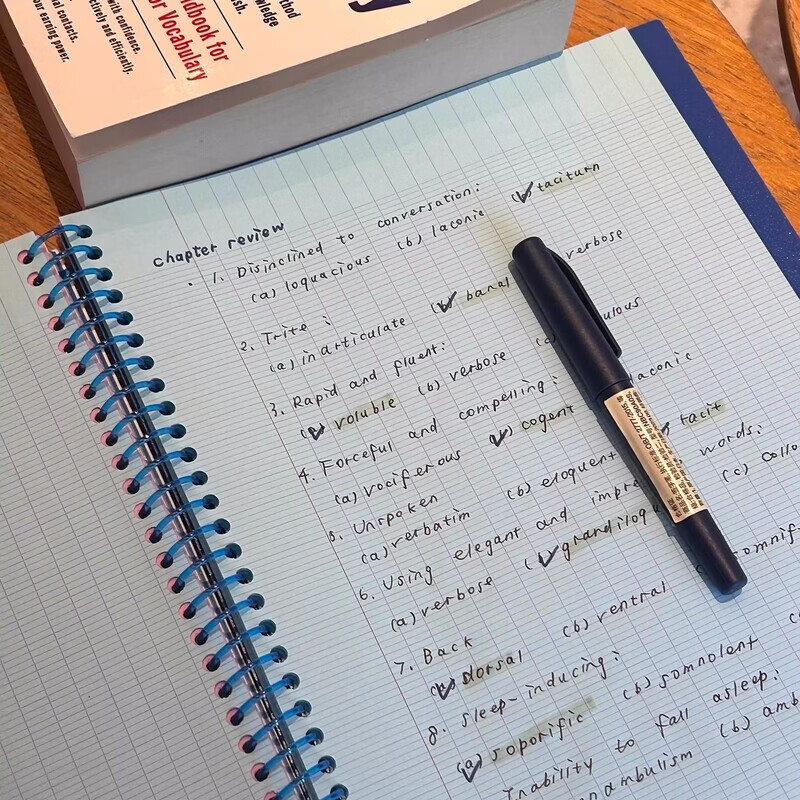 y
thod
wledge
sh.
ndbook for
or Vocabulary
with confidence.
ctively and efficiently.
al contacts.
ur earning power.
chapter review
1. Disinclined to conversation:
(a) loquacious (b) laconic (c) taciturn
2. Trite:
(a) inarticulate (b) banal verbose
3. Rapid and fluent:
(a) voluble (b) verbose (c) ulous
4. Forceful and compelling:
(a) vociferous (b) cogent laconic
5. Unspoken
(a) verbatim (b) eloquent tacit
6. Using elegant and impre words:
(a) verbose (b) grandiloqu (c) collo
7. Back
(a) dorsal (b) ventral somnif
8. sleep-inducing:
(a) soporific (b) somnolent (c
Inability to fall asleep:
nambulism (b) amb
GB/T 27717-2015